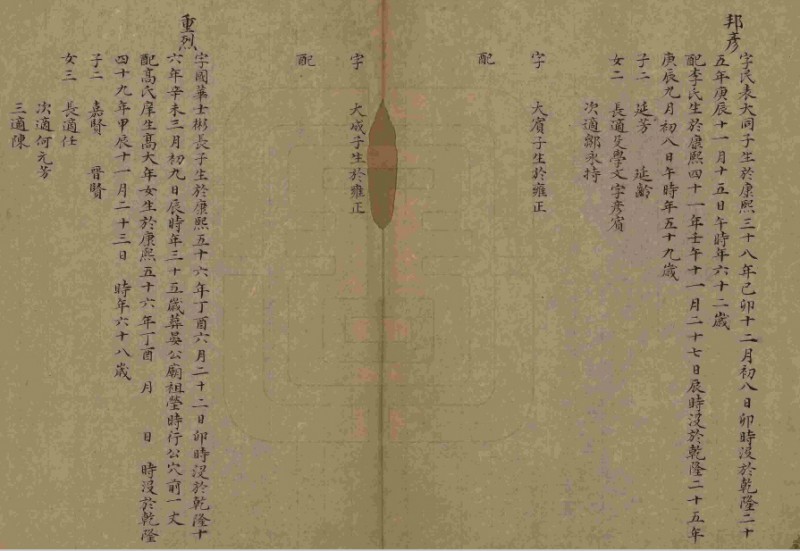 邦彥
字民表大同子生於康熙三十八年己卯十二月初八日卯時沒於乾隆二十
五年庚辰十一月十五日午時年六十二歲
配李氏生於康熙四十一年壬午十一月二十七日辰時沒於乾隆二十五年
庚辰九月初八日午時年五十九歲
子二 延芳 延齡
女二 長適 學文字彥賓
次適鄒永持
字 大賓子生於雍正
配
字 大成子生於雍正
配
重烈
字國華士彬長子生於康熙五十六年丁酉六月二十二日卯時沒於乾隆十
六年辛未三月初九日辰時年三十五歲葬晏公廟祖塋時行公穴前一丈
配高氏庠生高大年女生於康熙五十六年丁酉 月 日 時沒於乾隆
四十九年甲辰十一月二十三日 時年六十八歲
子二 嘉賢 晉賢
女三 長適任
次適何元芳
三適陳